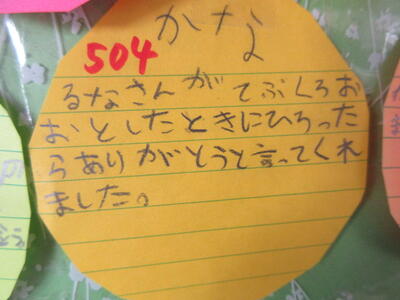 かな
504
るなさんがてぶくろお
おとしたときにひろった
らありがとうと言ってくれ
ました。